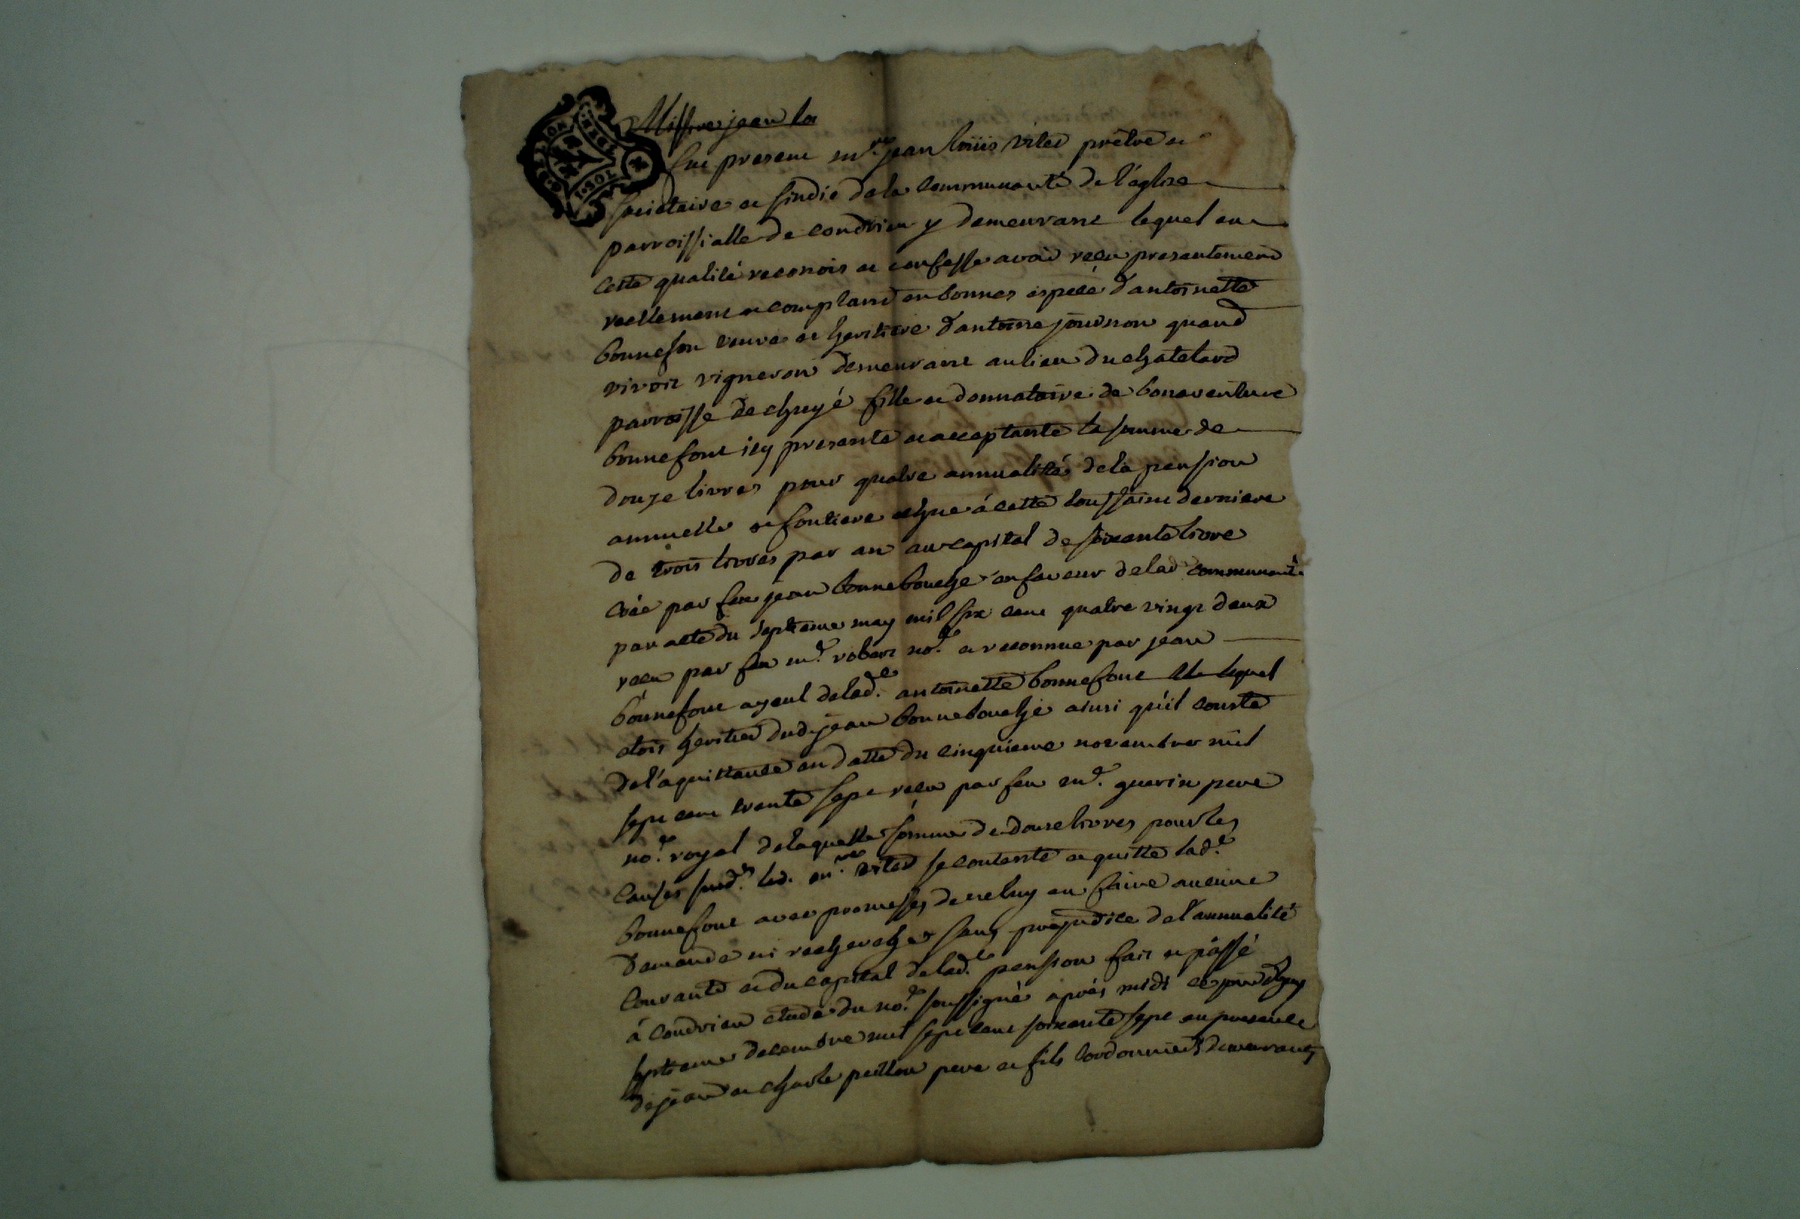 Messire jean la
fut present mre. jean loüis vitet prêtre et
societaire et sindic de la communauté de l'eglise
parroissialle de condrieu y demeurant lequel en
cette qualité reconois et confesse avoir reçu presentement
reellement et comptant en bonnes espece d'antoinette
bonnefon veuve et heritiere d'antoine journon quand
vivoit vigneron demeurant au lieu du chatelard
parroisse de chuyé fille et donnatoire de bonaventure
bonnefont icy presente et acceptante la somme de
douze livres pour quatre annualités de la pension
annuelle et fontiere echue à cette toussaint derniere
de trois livres par an au capital de soixante livre
créé par feu jean bonnebouche en faveur de lad communauté
par acte du septieme may mil six cent quatre vingt deux
reçu par feu me. robert nore. et reconnue par jean
bonnefont ayeul de lade. antoinette bonnefont lequel
etois heritier dud. jean bonnebouche ainsi qu'il conste
de l'aquittance en datte du cinquieme novembre mil
sept cent trente sept reçu par feu me. guerin pere
nore. royal de laquelle somme de douze livres pour les
causes susds. led. mre. vitet se contente et quitte lade.
bonnefont avec promesses de ne luy en faire aucune
demande ni recherche sans prejudice de l'annualité
courante et du capital de lade. pension fait et passé
à condrieu etude du nore. soussigné après midi ce jourdhuy
septieme decembre mil sept cent soixante sept en presence
de jean et charle peillon pere et fils cordonniers demeurants